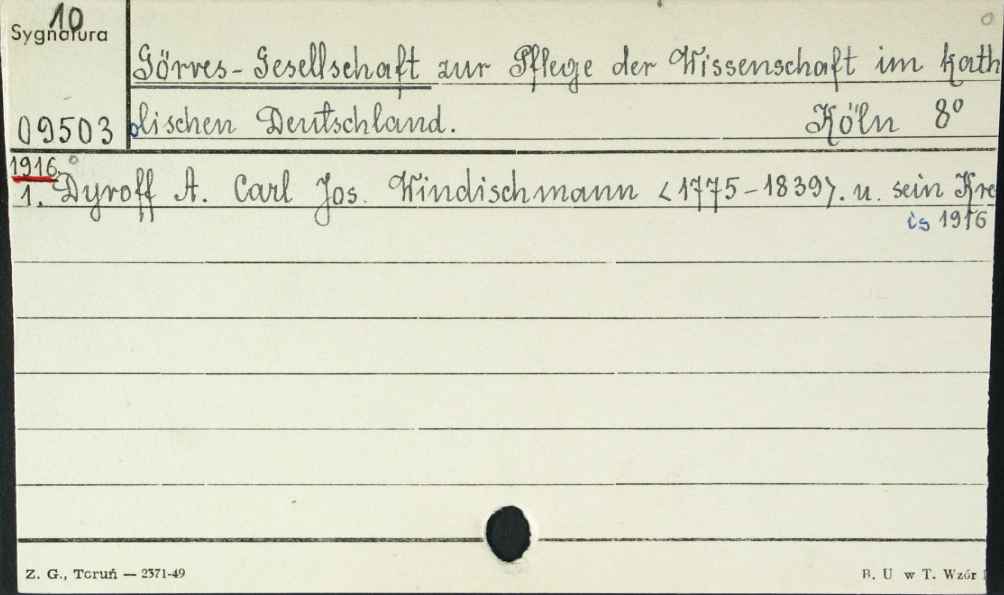 10
Sygnatura
Görres-Gesellschaft zur Pflege der Wissenschaft im kath
09503 olischen Deutschland. Köln 8°
1916
1. Dyroff A. Carl Jos. Windischmann <1775-1839>. u. sein Kre
is 1916
Z. G., Toruń — 2371-49
B. U w T. Wzór